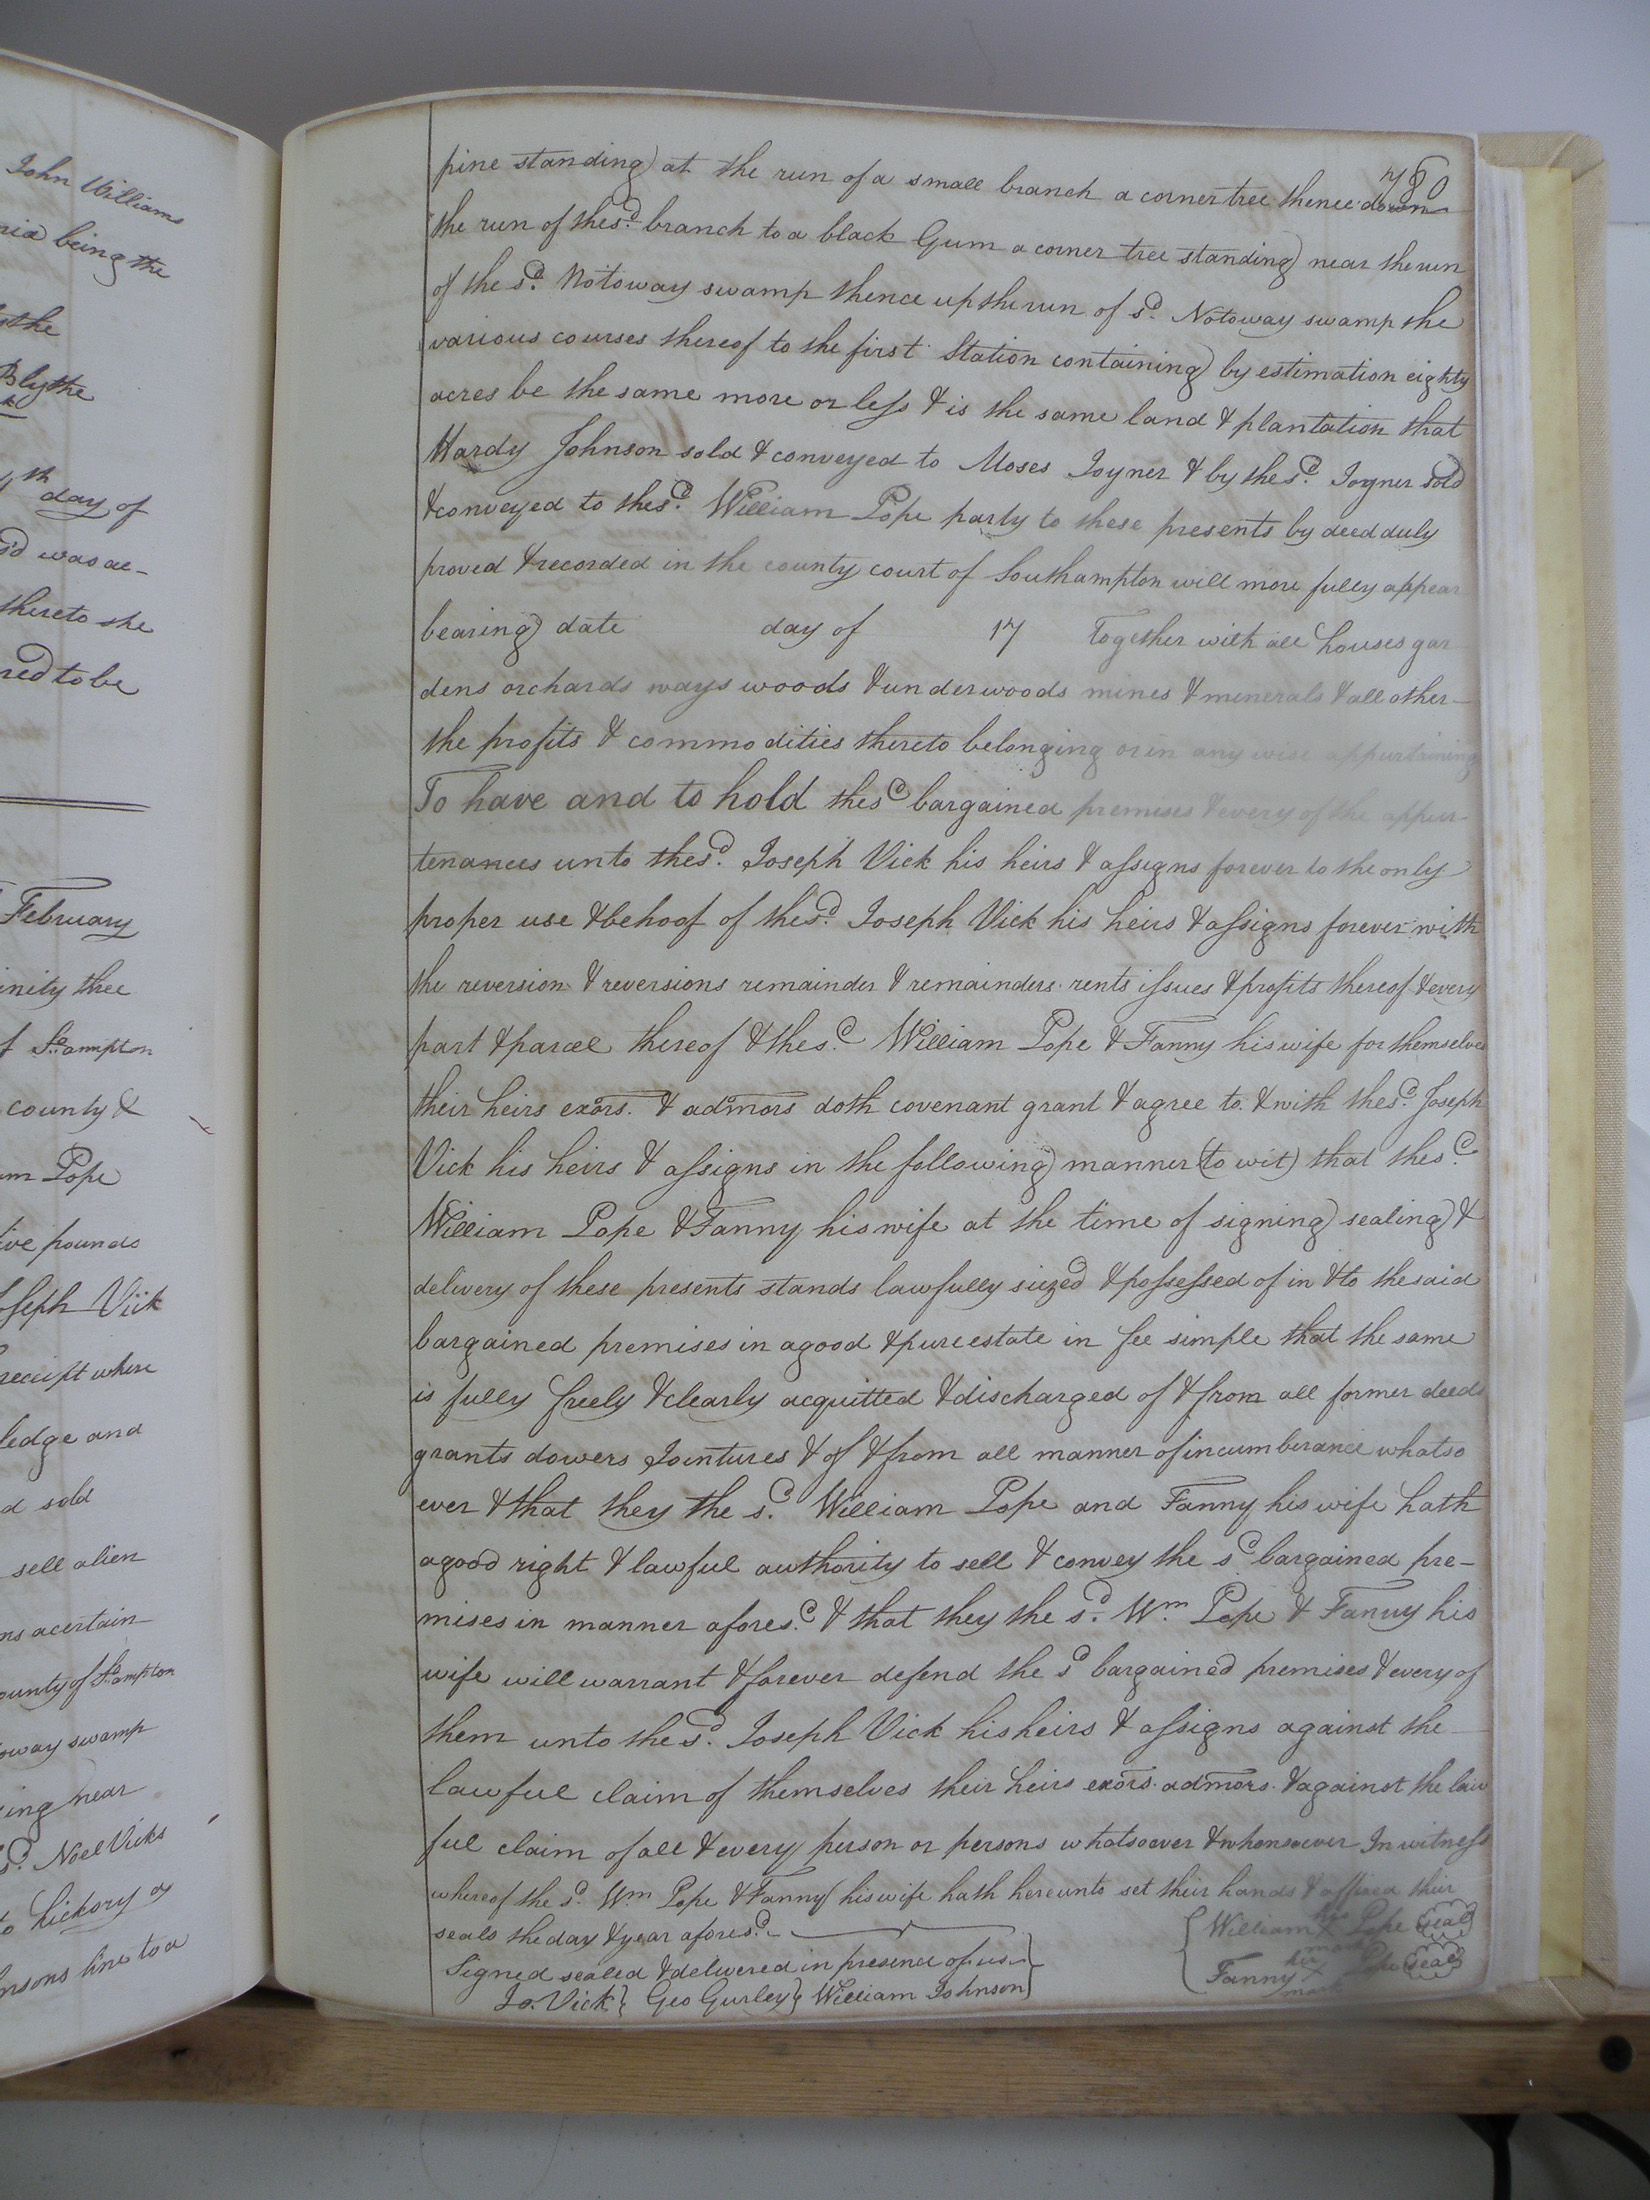 John Williams
being the
the
Blythe
th
day of
s'd was ac-
thereto she
red to be
February
inety three
f So.ampton
county &
m Pope
ive pounds
oseph Vick
receipt where
ledge and
d sold
sell alien
ns acertain
ounty of So.ampton
oway swamp
ing near
sd. Noel Vicks
to hickory
nsons line to a
780
pine standing at the run of a small branch a corner tree thence down
the run of the sd. branch to a black Gum a corner tree standing near the run
of the sd. Notoway swamp thence up the run of sd. Notoway swamp the
various courses thereof to the first Station containing by estimation eighty
acres be the same more or less & is the same land & plantation that
Hardy Johnson sold & conveyed to Moses Joyner & by the sd. Joyner sold
& conveyed to the sd. William Pope party to these presents by deed duly
proved & recorded in the county court of Southampton will more fully appear
bearing date day of 17 Together with all houses gar
dens orchards ways woods & underwoods mines & minerals & all other
the profits & commodities thereto belonging or in any wise appurtaining
To have and to hold the sd bargained premises & every of the appur-
tenances unto the sd. Joseph Vick his heirs & assigns forever to the only
proper use & behoof of the sd. Joseph Vick his heirs & assigns forever with
the reversion & reversions remainder & remainders rents issues & profits thereof & every
part & parcel thereof & the sd. William Pope & Fanny his wife for themselves
their heirs exors. & admors doth covenant grant & agree to & with the sd. Joseph
Vick his heirs & assigns in the following manner (to wit) that the sd.
William Pope & Fanny his wife at the time of signing sealing &
delivery of these presents stands lawfully siezed & possessed of in & to the said
bargained premises in a good & pure estate in fee simple that the same
is fully freely & clearly acquitted & discharged of & from all former deeds
grants dowers Jointures & of & from all manner of incumberance whatso
ever & that they the sd. William Pope and Fanny his wife hath
a good right & lawful authority to sell & convey the sd bargained pre-
mises in manner aforesd. & that they the sd. Wm. Pope & Fanny his
wife will warrant & forever defend the sd bargained premises & every of
them unto the sd. Joseph Vick his heirs & assigns against the
lawful claim of themselves their heirs exors. admors. & against the law
ful claim of all & every person or persons whatsoever & whomsoever In witness
whereof the sd. Wm Pope & Fanny his wife hath hereunto set their hands & affixed their
seals the day & year aforesd.
William his X mark Pope (seal)
Signed sealed & delivered in presence of us
Fanny her X mark Pope (seal)
Jo. Vick } Geo Gurley } William Johnson }